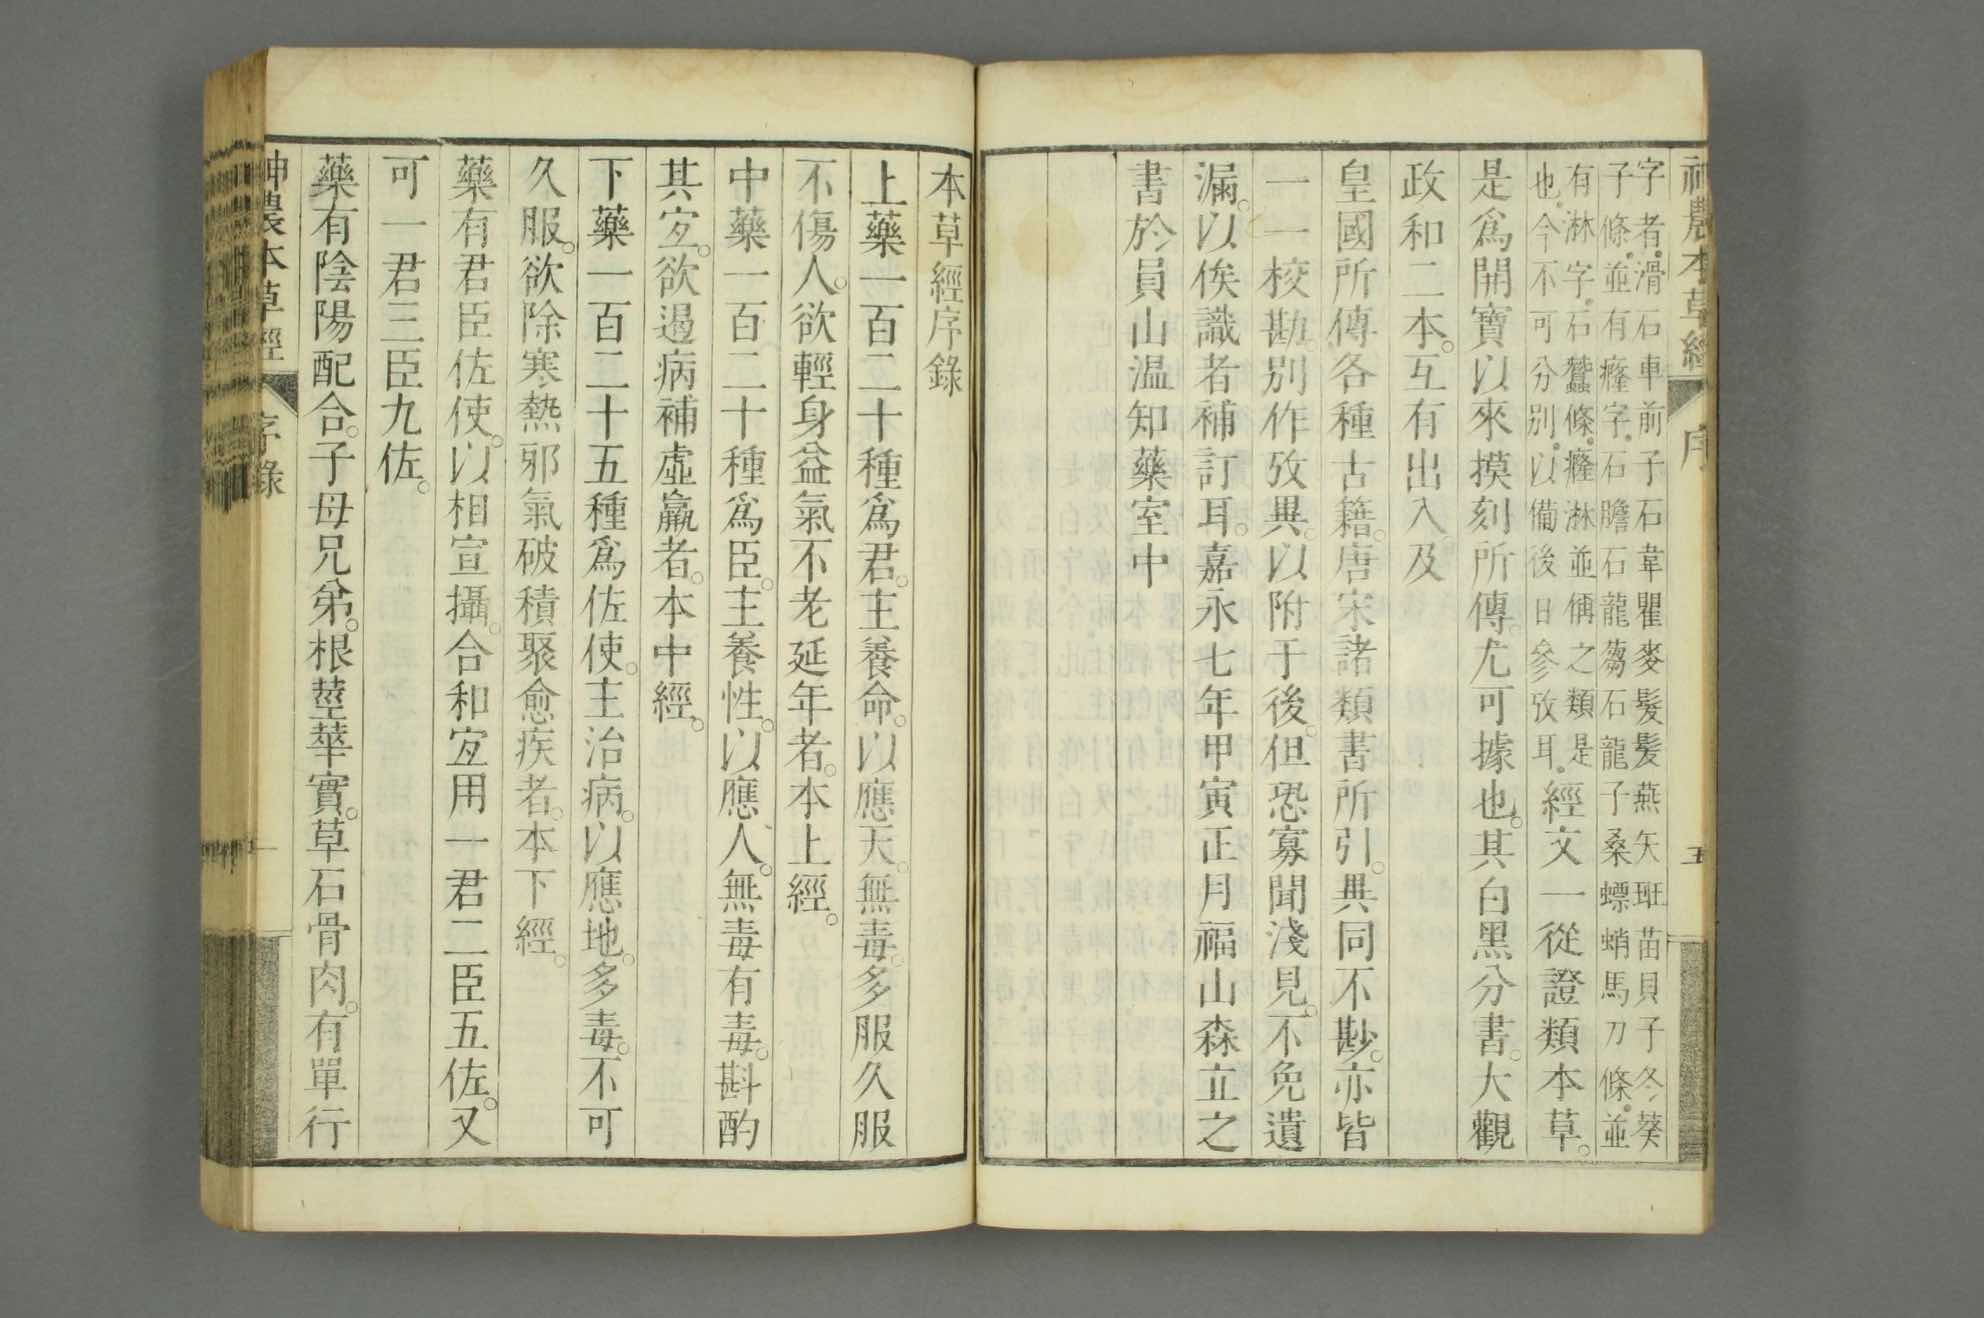 神農本草經 序 五
字者滑石車前子石韋瞿麥髮髲燕矢班苗貝子冬葵
子條。並有癃字。石膽石龍蒭石龍子桑螵蛸馬刀條。並
有淋字。石蠶條。癃淋並偁之類是
也。今不可分別。以備後日參攷耳。
經文一從證類本草。
是爲開寶以來摸刻所傳。尤可據也。其白黑分書。大觀
政和二本。互有出入。及
皇國所傳各種古籍。唐宋諸類書所引。異同不尠。亦皆
一一校勘。別作攷異。以附于後。但恐寡聞淺見。不免遺
漏。以俟識者補訂耳。嘉永七年甲寅正月福山森立之
書於員山温知藥室中
本草經序錄
上藥一百二十種爲君。主養命。以應天。無毒。多服久服
不傷人。欲輕身益氣不老延年者。本上經。
中藥一百二十種爲臣。主養性。以應人。無毒有毒。斟酌
其宜。欲遏病補虛羸者。本中經。
下藥一百二十五種爲佐使。主治病。以應地。多毒。不可
久服。欲除寒熱邪氣破積聚愈疾者。本下經。
藥有君臣佐使。以相宣攝。合和宜用一君二臣五佐。又
可一君三臣九佐。
藥有陰陽配合。子母兄弟。根莖華實。草石骨肉。有單行
神農本草經 序錄 一